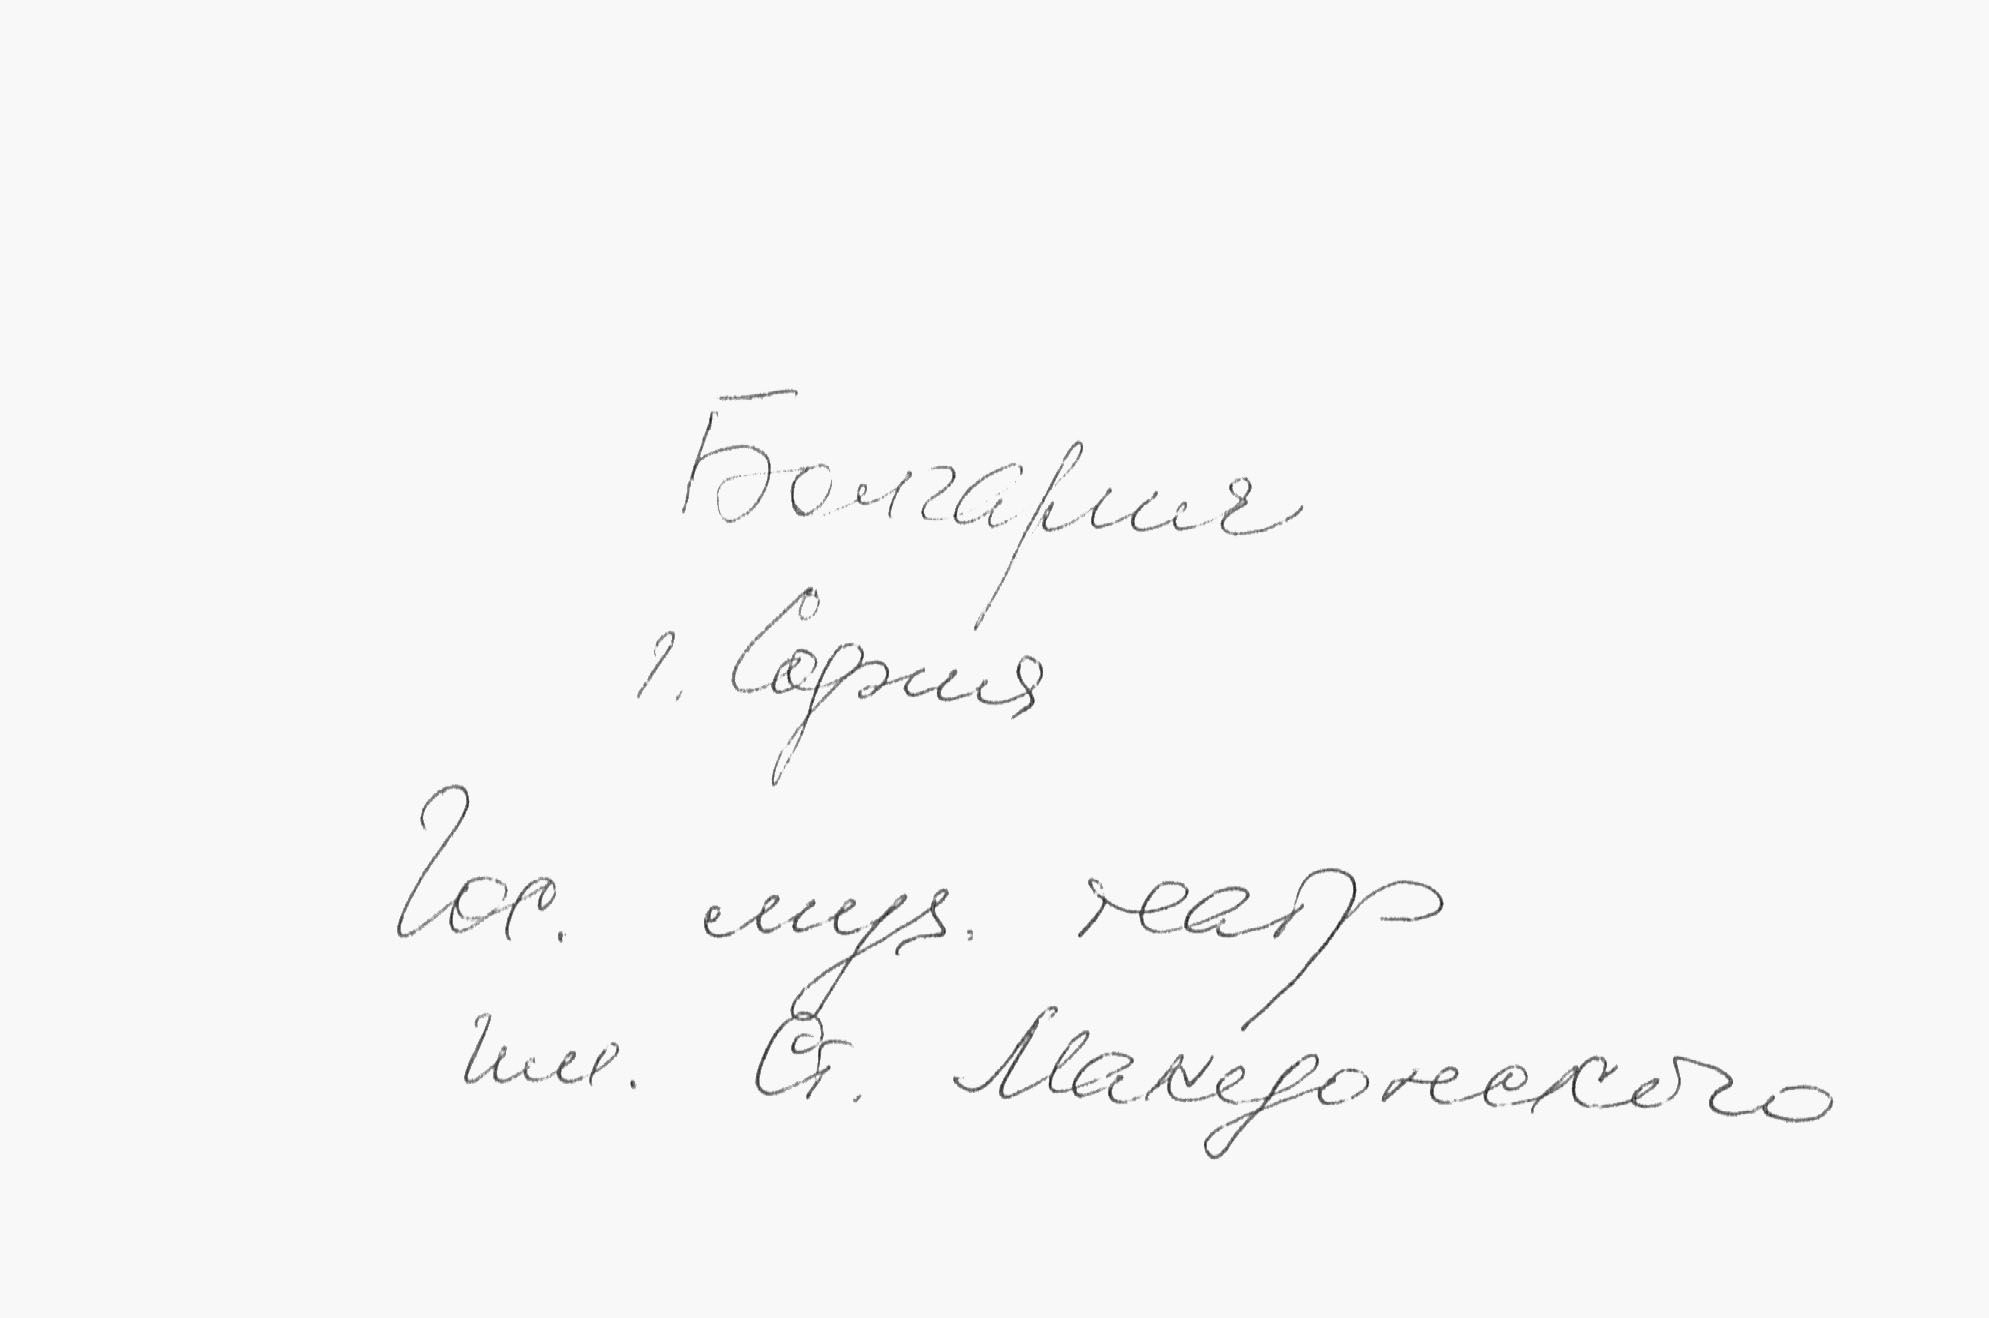 Болгария
г. София
Гос. муз. театр
им. Ст. Македонского